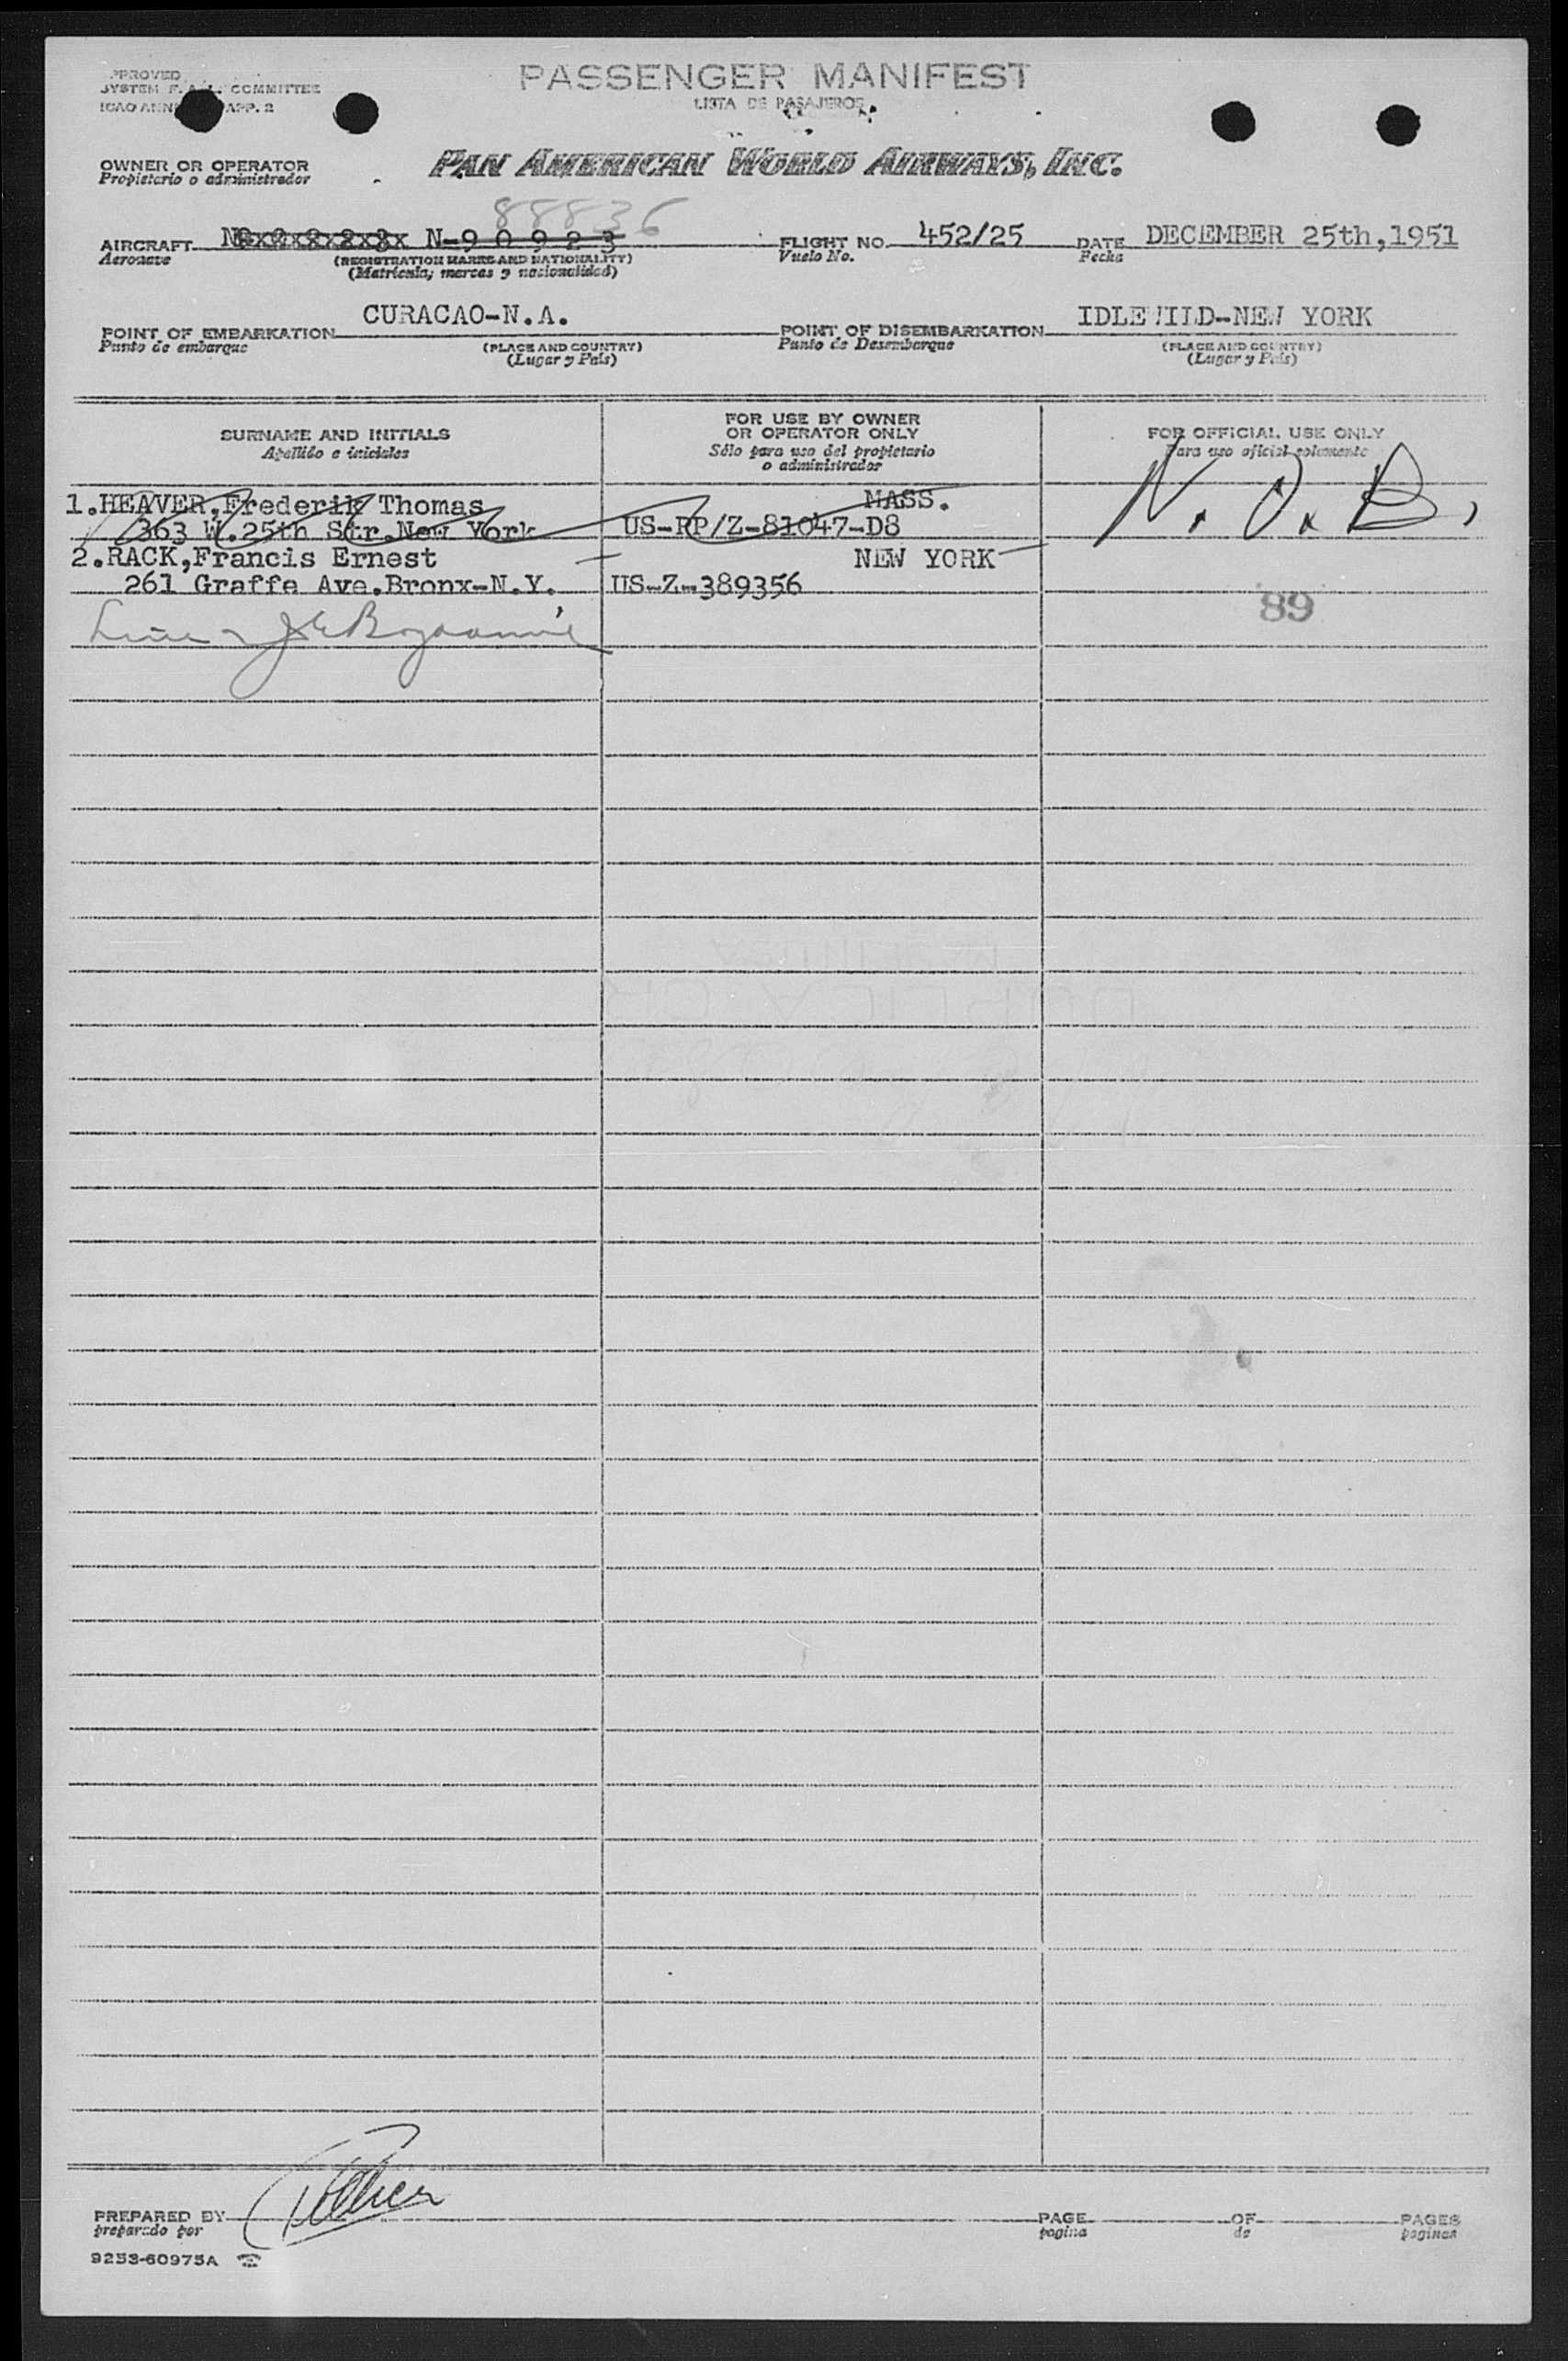 APPROVED
SYSTEM F.A.L. COMMITTEE
ICAO ANNEX APP. 2
PASSENGER MANIFEST
LISTA DE PASAJEROS
OWNER OR OPERATOR
Propietario o administrador
PAN AMERICAN WORLD AIRWAYS, INC.
88836
AIRCRAFT N-90923
Aeronave
(REGISTRATION MARKS AND NATIONALITY)
(Matrícula, marcas y nacionalidad)
FLIGHT NO. 452/25
Vuelo No.
DATE DECEMBER 25th,1951
Fecha
POINT OF EMBARKATION CURACAO-N.A.
Punto de embarque
(PLACE AND COUNTRY)
(Lugar y País)
POINT OF DISEMBARKATION IDLEWILD-NEW YORK
Punto de Desembarque
(PLACE AND COUNTRY)
(Lugar y País)
SURNAME AND INITIALS
Apellido e iniciales
FOR USE BY OWNER
OR OPERATOR ONLY
Sólo para uso del propietario
o administrador
FOR OFFICIAL USE ONLY
Para uso oficial solamente
1.HEAVER,Frederik Thomas MASS.
363 W.25th Str.New York US-RP/Z-81047-D8 N.O.B.
2.RACK,Francis Ernest NEW YORK
261 Graffe Ave.Bronx-N.Y. US-Z-389356
89
PREPARED BY
preparado por
PAGE OF PAGES
pagina de paginas
9253-60975A